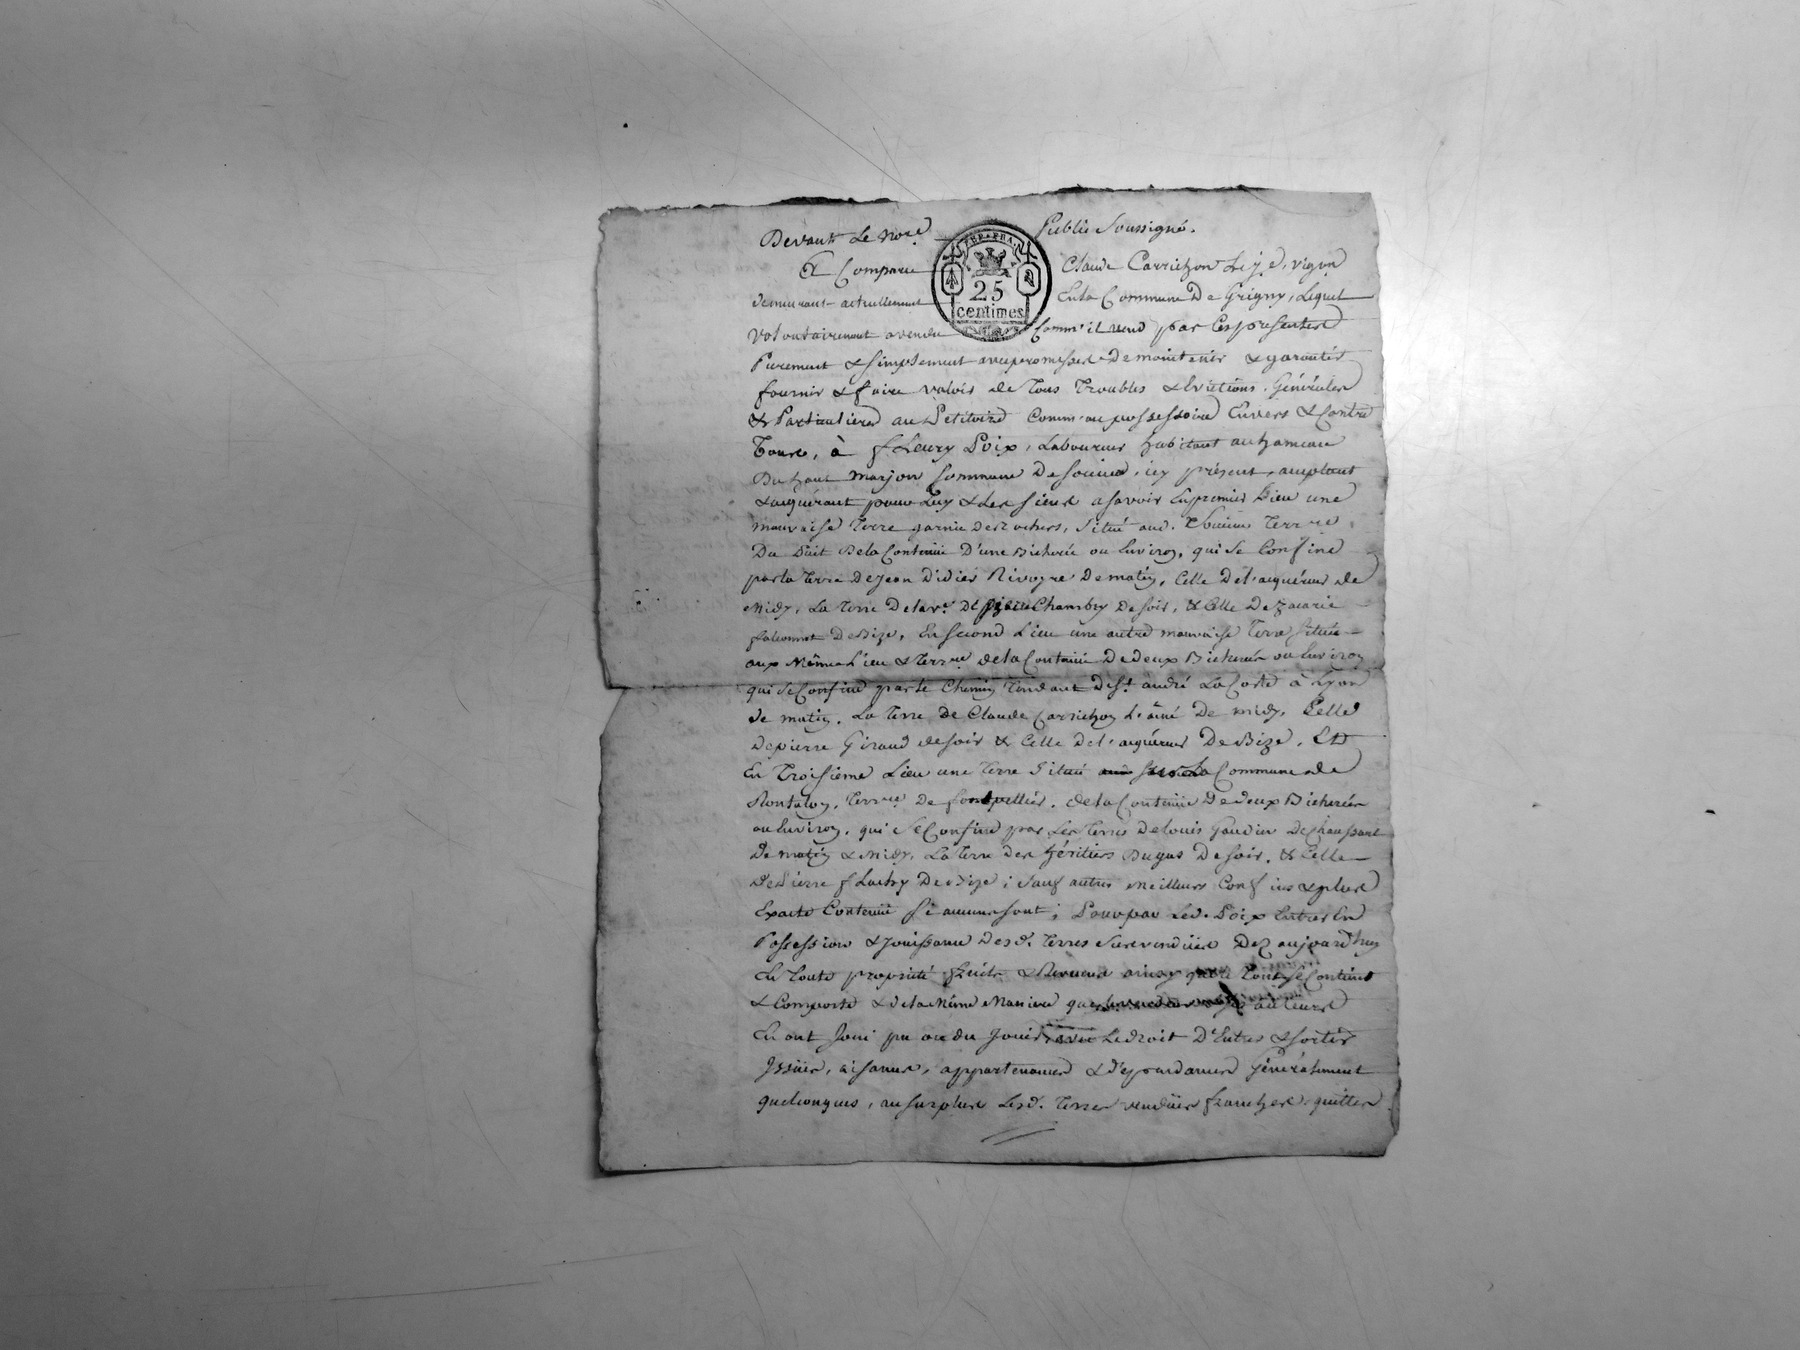 Devant Le Nore Publié Soussigné.
REP. FRA.
25
centimes
A Comparu Claude Carrichon Le je. vigon
demeurant actuellement En la Commune De Grigny, Lequel
volontairement a vendu Comm'il vend par Ces présentes
Purement & simplement avec promesse De maintenir & garantir
fournir & faire valoir de Tous Troubles & Evictions. Générales
& Particulieres au Petitoire Comm'au possessoire Envers & Contre
Tous, à fleury Poix, Laboureur habitant au hameau
Du haut Marjon Commune De Soucieu, icy présent, acceptant
& aquérant pour Luy & Les siens a savoir En premier Lieu une
mauvaise Terre garnie de Rochers, situé aud. Terroire
Du Puit De la Contenüe D'une Bicherée ou Environ, qui se Confine
par la Terre De Jean Didier Rivoyre De matin, Celle De l'aquéreur de
Midy, La Terre De la ve. De Chambry De soir, & Celle De Zacarie
falconnet De Bize, En second Lieu une autre mauvaise Terre située
aux Même Lieu & Terrre. de la Contenüe De deux Bicherées ou Environ
qui se Confine par le Chemin Tendant De St. andré La Coste à Lyon
de matin, La Terre De Claude Carrichon L'ainé De midy, Celle
De pierre Giraud de soir & Celle De l'aquéreur De Bize, Et
En Troisième Lieu une Terre située sur La Commune de
Rontalon, Terrre. De fontpellier, de la Contenüe De deux Bicherées
ou Environ, qui se Confine par Les Terres De Louis Gaudin De Chaussant
De matin & Midy, La Terre Des héritiers Dugas De soir, & Celle
De Pierre flachy De Bize; sauf autres meilleurs Confins & plus
Exacte Contenüe si aucuns sont; Pour par Led. Poix Entrer En
Possession & Jouissance Desd. Terres surevendües Dez aujourd'huy
En Toute propriété fruits & Revenus ainsy que Le Tout se Contient
& Comporte & de la Même Manière que auteurs
En ont Joui pu ou du Jouir, avec Le droit D'Entrer & sortir
Issües, aisances, appartenances & Dépendances Généralement
quelconques, au surplus Lesd. Terres vendües franches, quittes